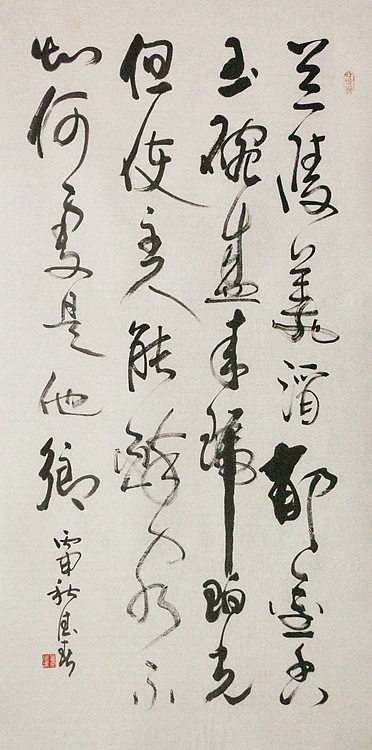 兰陵美酒郁金香
玉碗盛来琥珀光
但使主人能醉客不
知何處是他鄉